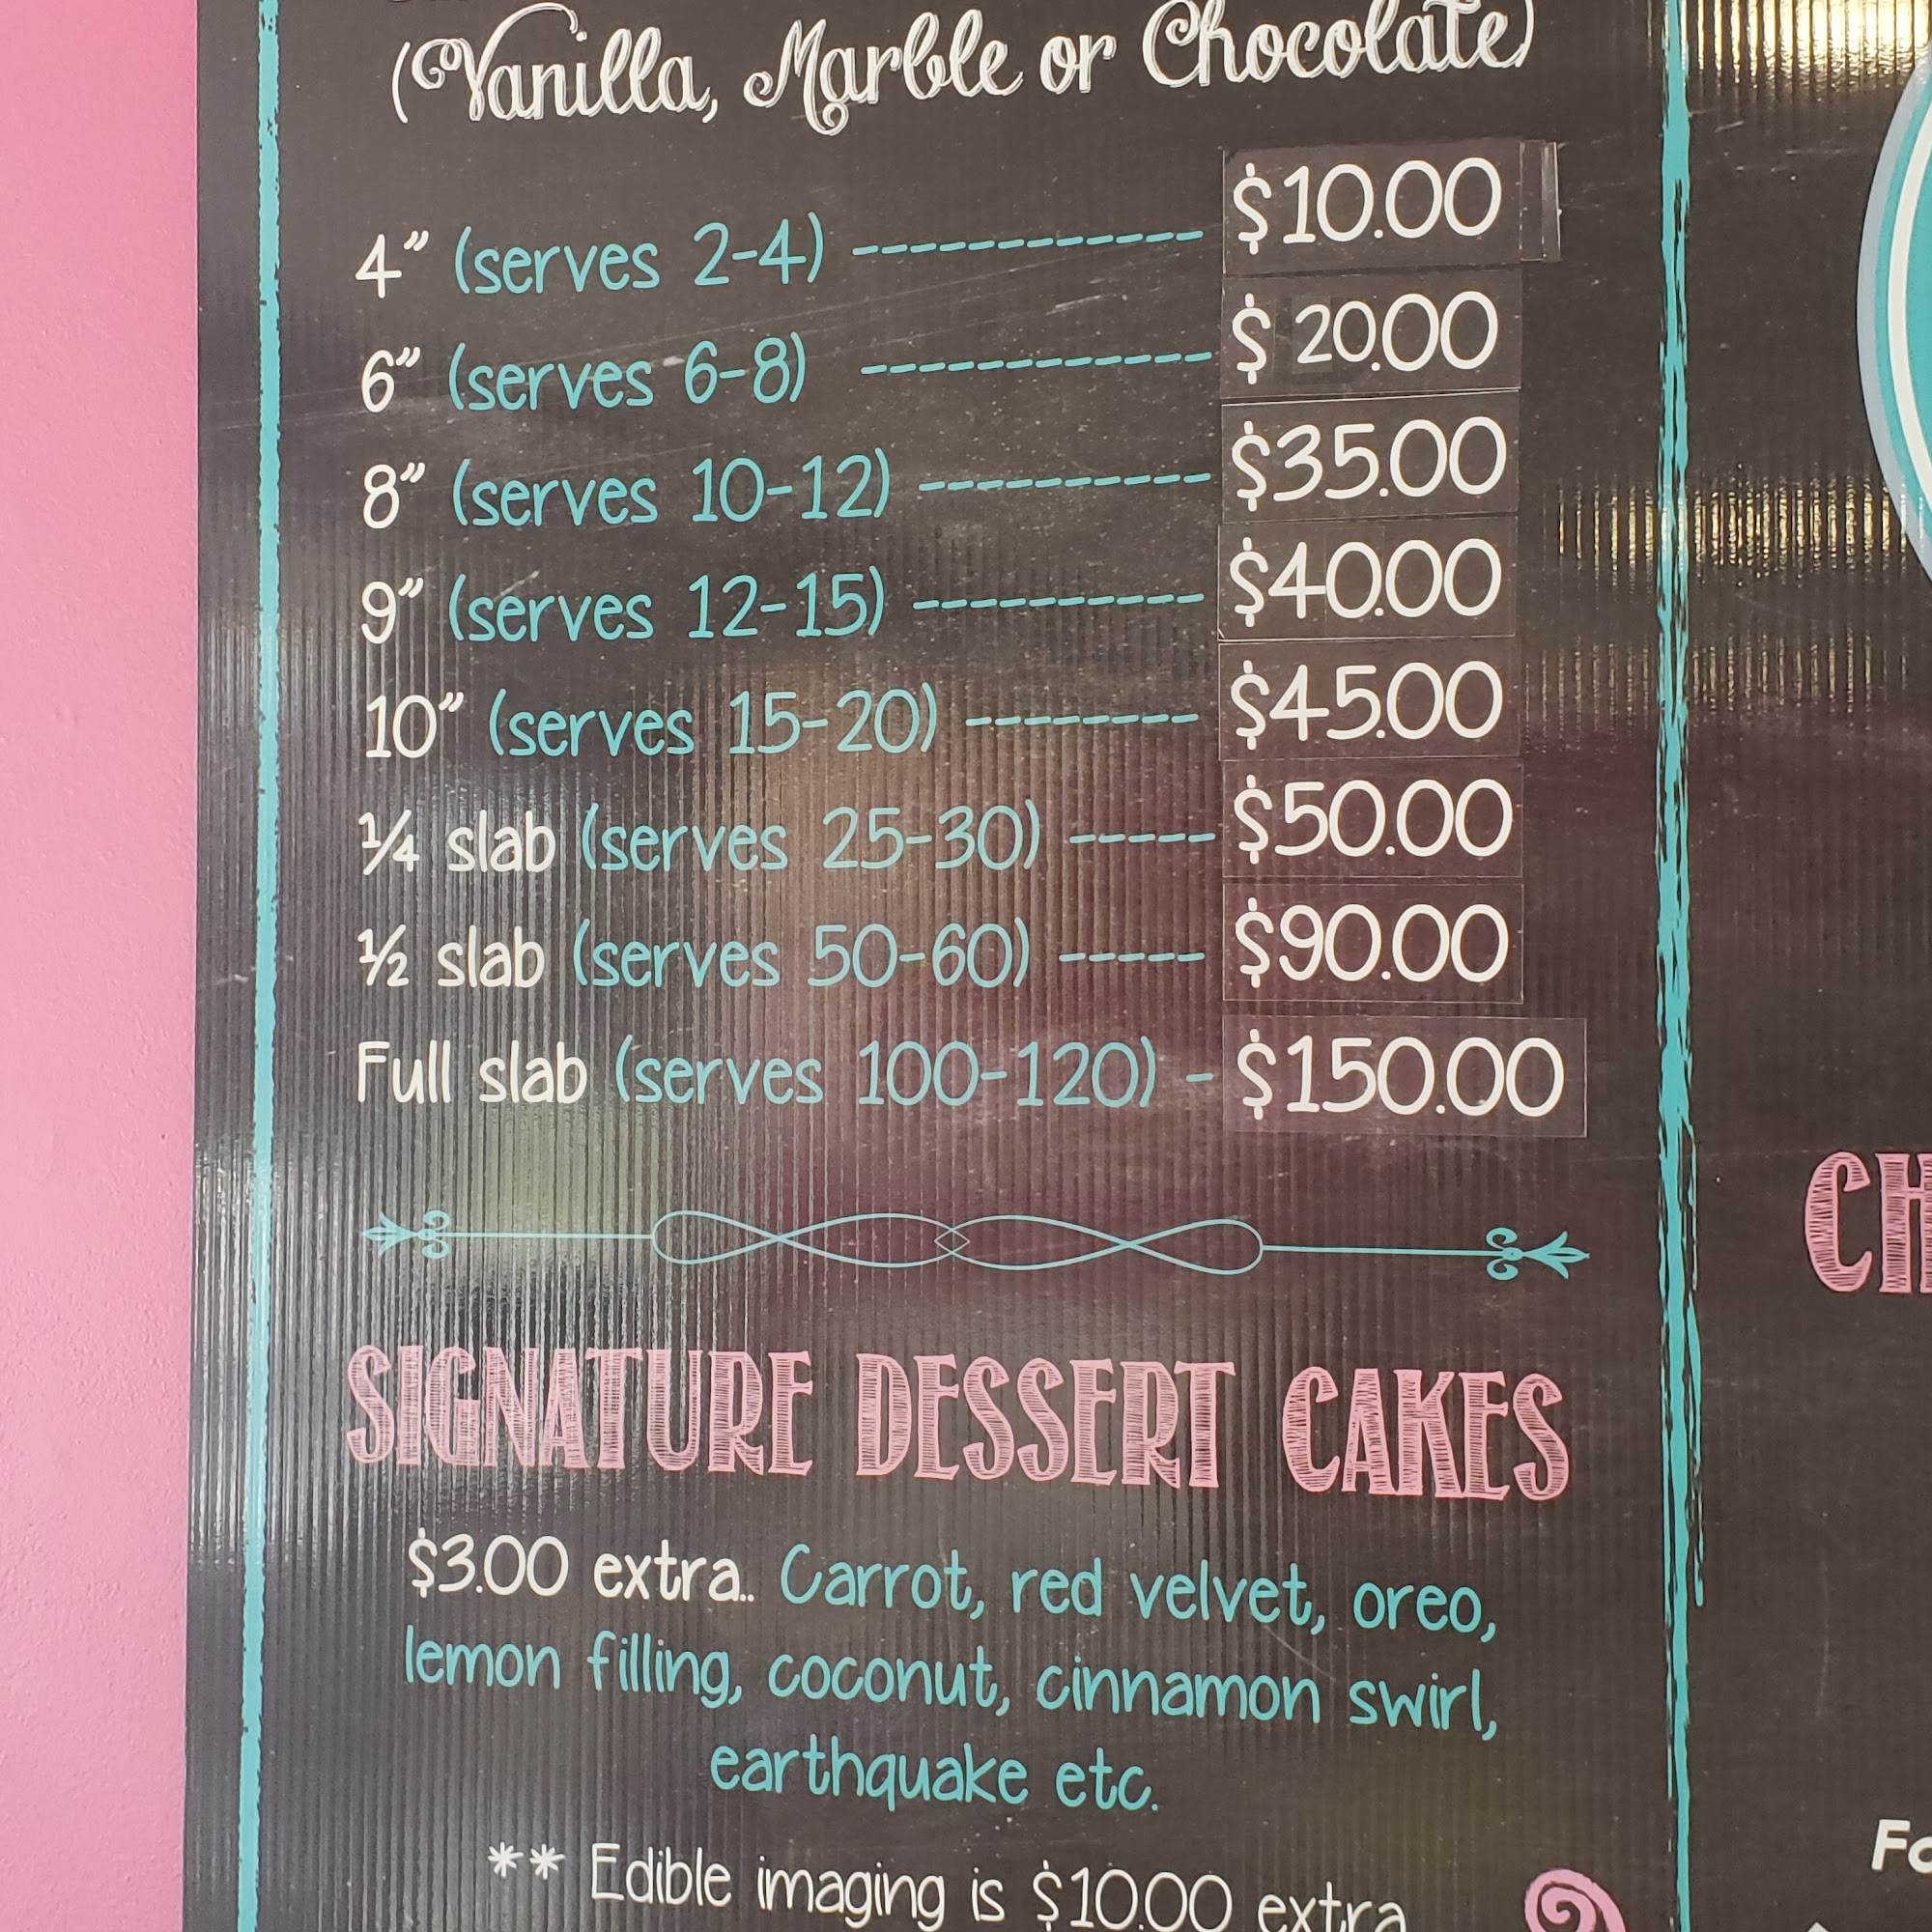 (Vanilla, Marble or Chocolate)
4" (serves 2-4) ------------ $10.00
6" (serves 6-8) ------------ $ 20.00
8" (serves 10-12) ---------- $35.00
9" (serves 12-15) ---------- $40.00
10" (serves 15-20) -------- $45.00
¼ slab (serves 25-30) ----- $50.00
½ slab (serves 50-60) ----- $90.00
Full slab (serves 100-120) - $150.00
SIGNATURE DESSERT CAKES
$3.00 extra.. Carrot, red velvet, oreo,
lemon filling, coconut, cinnamon swirl,
earthquake etc.
** Edible imaging is $10.00 extra